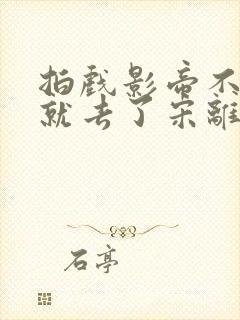 拍戲影帝不
就去了宋離
石亭